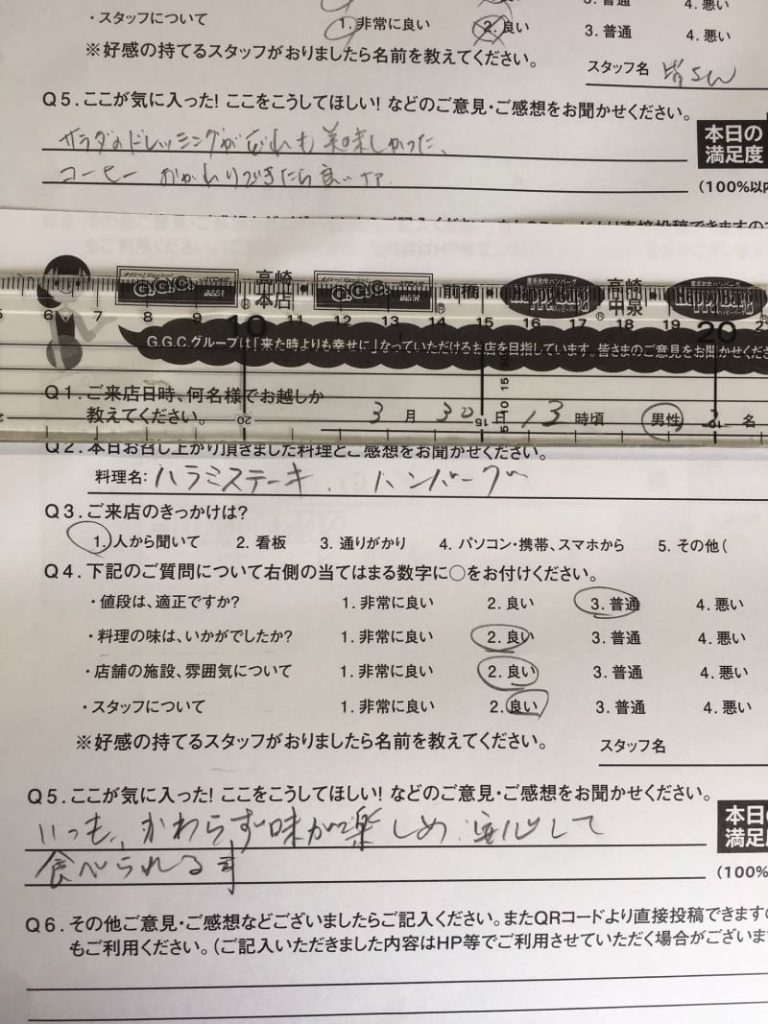 3. 普通 4. 悪い
・スタッフについて 1. 非常に良い 2. 良い 3. 普通 4. 悪い
※好感の持てるスタッフがおりましたら名前を教えてください。
スタッフ名 皆さん
Q5. ここが気に入った! ここをこうしてほしい! などのご意見・ご感想をお聞かせください。
サラダのドレッシングがどれも美味しかった、
コーヒー おかわりできたら良い
本日の
満足度
(100%以
G.G.C. 高崎本店 G.G.C. 前橋 Happy Burg 高崎中泉 Happy Burg
6 7 8 9 10 11 12 13 14 15 16 17 18 19 20
G.G.C.グループは「来た時よりも幸せに」なっていただけるお店を目指しています。皆さまのご意見をお聞かせくださ
Q1. ご来店日時、何名様でお越しか
教えてください。 3月 30日 13時頃 男性 名
Q2. 本日お召し上がり頂きました料理とご感想をお聞かせください。
料理名: ハラミステーキ、ハンバーグ
Q3. ご来店のきっかけは?
1. 人から聞いて 2. 看板 3. 通りがかり 4. パソコン・携帯、スマホから 5. その他(
Q4. 下記のご質問について右側の当てはまる数字に○をお付けください。
・値段は、適正ですか? 1. 非常に良い 2. 良い 3. 普通 4. 悪い
・料理の味は、いかがでしたか? 1. 非常に良い 2. 良い 3. 普通 4. 悪い
・店舗の施設、雰囲気について 1. 非常に良い 2. 良い 3. 普通 4. 悪い
・スタッフについて 1. 非常に良い 2. 良い 3. 普通 4. 悪い
※好感の持てるスタッフがおりましたら名前を教えてください。 スタッフ名
Q5. ここが気に入った! ここをこうしてほしい! などのご意見・ご感想をお聞かせください。
いつも、かわらず味が楽しめ、安心して
食べられる事
本日の
満足度
(100%
Q6. その他ご意見・ご感想などございましたらご記入ください。またQRコードより直接投稿できますの
もご利用ください。(ご記入いただきました内容はHP等でご利用させていただく場合がございま